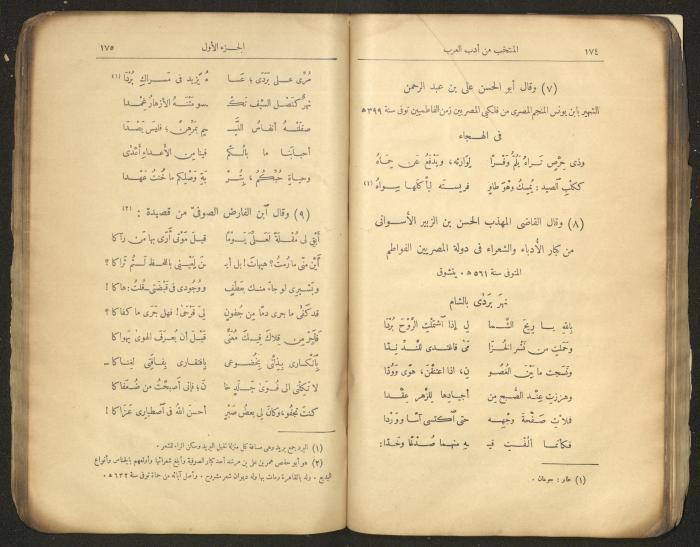 ١٧٤
المنتخب من أدب العرب
(٧) وقال أبو الحسن على بن عبد الرحمن
الشهير بابن يونس المنجم المصرى من فلكيى المصريين زمن الفاطميين توفى سنة ٣٩٩ ه
فى الهجاء
وذى حِرْصٍ تراهُ يَلُمُّ وَفْرًا لِوَارِثِه، ويَدْفَعُ عَن حِمَاهُ
ككلبِ الصيد: يُمسِكُ وَهْوَ طاوٍ فريستَه ليأكلَها سِواهُ (١)
(٨) وقال القاضى المهذب الحسن بن الزبير الأسوانى
من كبار الأدباء والشعراء فى دولة المصريين الفواطم
المتوفى سنة ٥٦١ ه ـ يتشوق
نهر بَرَدَى بالشام
بالله يا ريحَ الشَّما لِ إذا اشْتَمَلْتِ الرَّوْحَ بُرْدَا
وحَمَلتِ من نَشْر الخُزَا مَى فاغتدى للنَّدِّ نِدَّا
ونسَجتِ ما بَيْن الغصُو نِ، اذا اعتنَقْنَ، هَوًى وَوُدَّا
وهززتِ عِنْد الصُّبح مِن أجيادِها للزهر عِقْدا
فملأتِ صَفْحةَ وَجْهِه حتى اكْتسى آسًا ووَرْدا
فكأنما ألقَيتِ فيـ ـهِ منهما صُدْغًا وخَدّا:
(١) طاو : جوعان ٠
الجزء الأول
١٧٥
مُرِّى على بَرَدَى ؛ عَسا هُ يَزيد فى مَسراك بُرْدَا (١)
نهرٌ كنَصْل السَّيْف تكـ سو مَتْنَهُ الأزهارُ غِمْدا
صقَلتْهُ أنفاسُ النَّسِيـ ـمِ بمَرِّهنَّ ؛ فليس يَصْدَا
أحبابَنا ما بالُكم فينا من الأعداءِ أَعْدَى
وحياةِ حُبِّكمُ ، بِتُرْ بَةِ وَصْلِكم ما خُنتُ عَهْدا
(٩) وقال ابن الفارض الصوفىّ من قصيدة : (٢)
أَبْقِ لى مُقْلةً لعَلِّىَ يَوْمًا قبلَ مَوْتى أَرَى بها مَن رآكا
أَيْنَ مِنِّى ما رُمتُ؟ هيهات! بل أيـ ـنَ لِعَيْنىَ باللحظ لَثْمُ ثَراكا ؟
وبَشيرى لو جاءَ منك بعَطْفٍ ووُجودى فى قَبْضَتى ـ قلتُ: هاكا !
قد كَفَى ما جرى دمًا مِن جُفونٍ لِىَ قَرْحَى؛ فهل جرى ما كفاكا ؟
فأَجِرْ مِن قِلاكَ فِيكَ مُعَنًّى قَبْلَ أن يُعرَفَ الهوى يَهْواكا
بانْكسارى بِذلَّتى بخُضوعى بافتقارى بفاقتى لِغِناكا ـ
لا تَكِلْنى الى قُوَى جَلَدٍ خا نَ؛ فإنى أصبحتُ من ضُعَفاكا
كنتَ تجفُو، وكان لى بعضُ صَبْرٍ أحسن اللهُ فى اصْطِبارى عَزاكا !
(١) البرد جمع بريد وهى مسافة كل منزلة لخيل البريد وسكن الراء للشعر ٠
(٢) هو أبو حفص عمر بن على بن مرشد أحد كبار الصوفية وأبلغ شعرائها وأولعهم بالجناس وأنواع
البديع ٠ وله بالقاهرة ومات بها وله ديوان شعر مشروح ٠ وأصل آبائه من حماة توفى سنة ٦٣٢ ه ٠